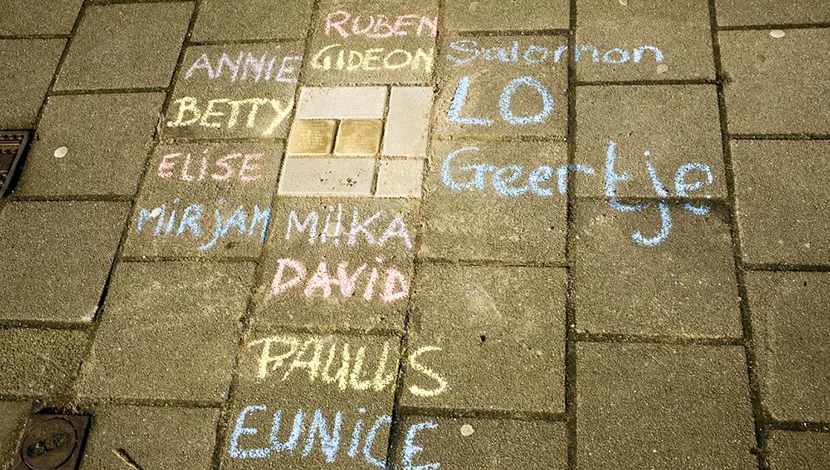 RUBEN
GIDEON
Salomon
ANNIE
LO
BETTY
ELISE
Geertje
MIRJAM
MILKA
DAVID
PAULUS
EUNICE